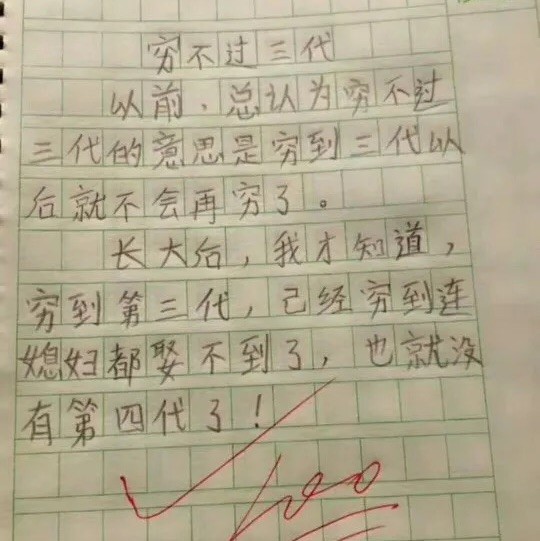 穷不过三代
以前，总认为穷不过
三代的意思是穷到三代以
后就不会再穷了。
长大后，我才知道，
穷到第三代，己经穷到连
媳妇都娶不到了，也就没
有第四代了！
100